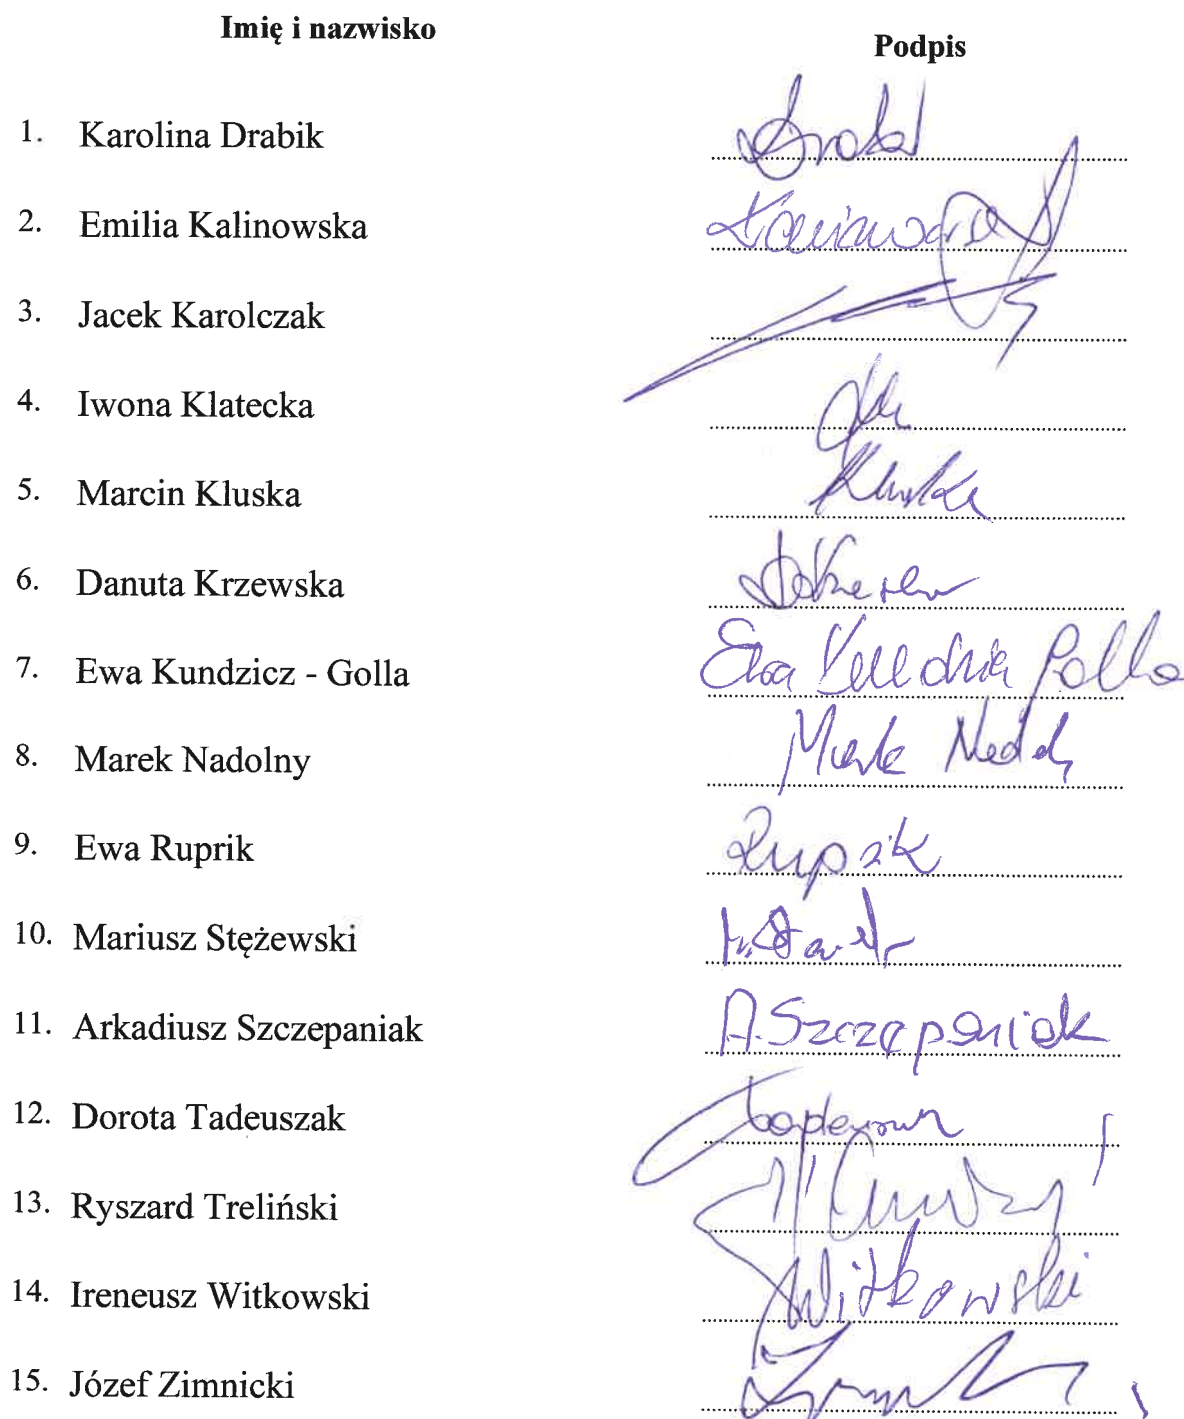 Imię i nazwisko Podpis
1. Karolina Drabik
2. Emilia Kalinowska
3. Jacek Karolczak
4. Iwona Klatecka
5. Marcin Kluska Kluska
6. Danuta Krzewska
7. Ewa Kundzicz - Golla Ewa Golla
8. Marek Nadolny Marek
9. Ewa Ruprik Ruprik
10. Mariusz Stężewski
11. Arkadiusz Szczepaniak A. Szczepaniak
12. Dorota Tadeuszak
13. Ryszard Treliński
14. Ireneusz Witkowski Witkowski
15. Józef Zimnicki